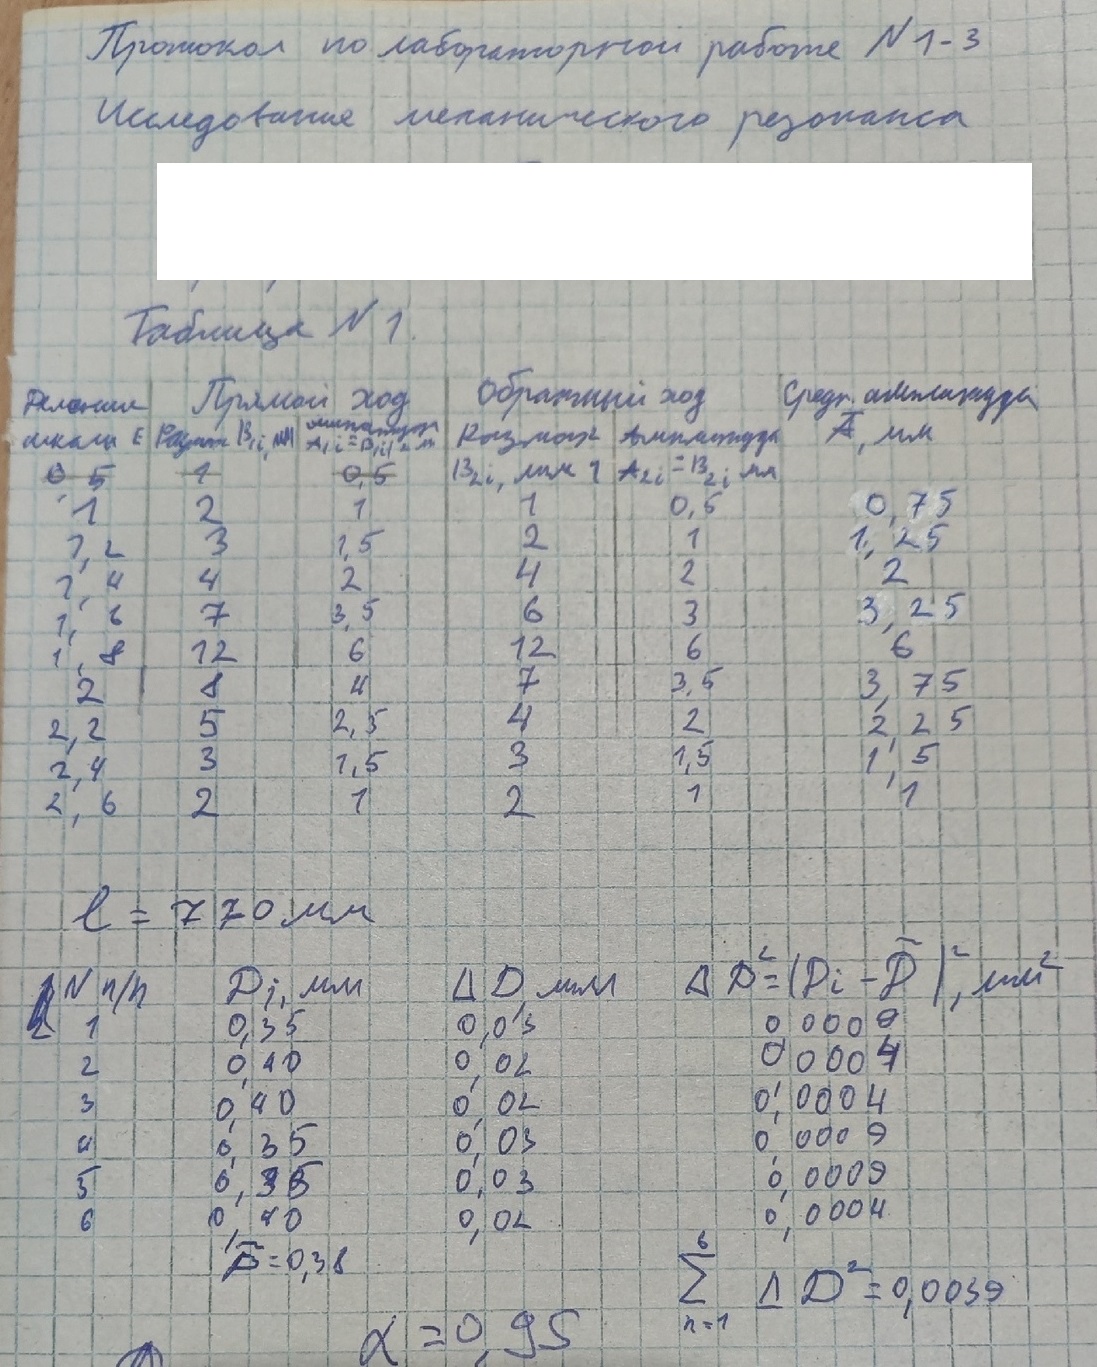 Протокол по лабораторной работе N 1-3
Исследование механического резонанса
Таблица N 1.
Деление Прямой ход Обратный ход Средн. амплитуда
шкалы E Размах B₁ᵢ, мм Амплитуда Размах Амплитуда A̅, мм
0,5 1 0,5 B₂ᵢ, мм A₂ᵢ = B₂ᵢ мм
1 2 1 1 0,5 0,75
1,2 3 1,5 2 1 1,25
1,4 4 2 4 2 2
1,6 7 3,5 6 3 3,25
1,8 12 6 12 6 6
2 8 4 7 3,5 3,75
2,2 5 2,5 4 2 2,25
2,4 3 1,5 3 1,5 1,5
2,6 2 1 2 1 1
l = 770 мм
N п/п Dᵢ, мм Δ D, мм Δ D² = (Dᵢ - D̅)², мм²
1 0,35 0,03 0,0009
2 0,40 0,02 0,0004
3 0,40 0,02 0,0004
4 0,35 0,03 0,0009
5 0,35 0,03 0,0009
6 0,40 0,02 0,0004
D̅ = 0,38
6
∑ Δ D² = 0,0039
n=1
α = 0,95